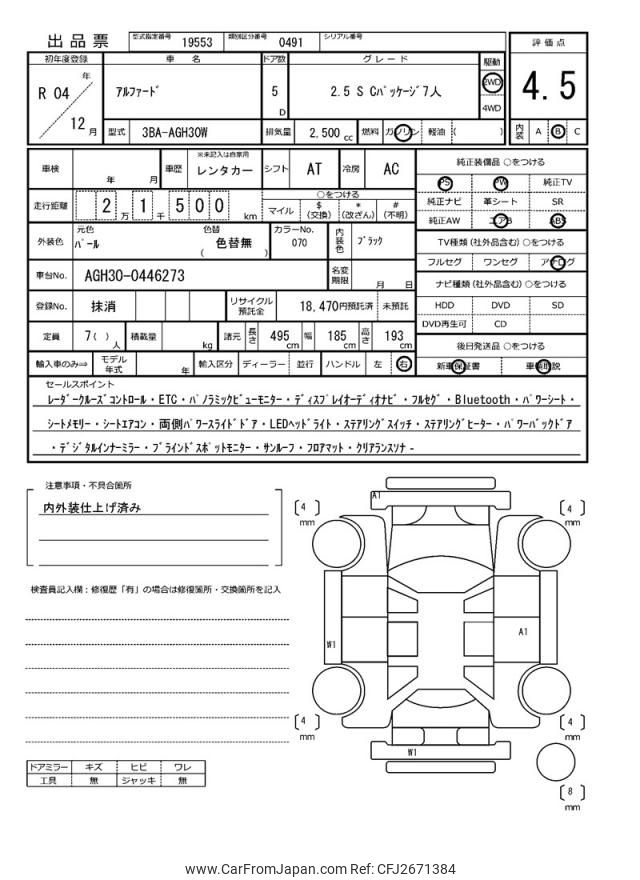 出品票 型式指定番号 19553 類別区分番号 0491 シリアル番号
評価点
4.5
内装 A B C
初年度登録 車名 ドア数 グレード 駆動
R 04 年 12 月 アルファード 5 D 2.5 S Cパッケージ7人 2WD 4WD
型式 3BA-AGH30W 排気量 2,500 cc 燃料 ガソリン 軽油 ( )
車検 年 月 車歴 ※未記入は自家用 レンタカー シフト AT 冷房 AC
走行距離 2 万 1 千 5 0 0 km ○をつける マイル $(交換) *(改ざん) #(不明)
外装色 元色 パール 色替 色替無 ( ) カラーNo. 070 内装色 ブラック
車台No. AGH30-0446273 名変期限 月 日
登録No. 抹消 リサイクル預託金 18,470円預託済 未預託
定員 7( )人 積載量 kg 諸元 長さ 495 cm 幅 185 cm 高さ 193 cm
輸入車のみ⇒ モデル年式 年 輸入区分 ディーラー 並行 ハンドル 左 右
純正装備品 ○をつける
PS PW 純正TV
純正ナビ 革シート SR
純正AW エアB ABS
TV種類 (社外品含む) ○をつける
フルセグ ワンセグ アナログ
ナビ種類 (社外品含む) ○をつける
HDD DVD SD
DVD再生可 CD
後日発送品 ○をつける
新車保証書 車輌取説
セールスポイント
レーダークルーズコントロール・ETC・パノラミックビューモニター・ディスプレイオーディオナビ・フルセグ・Bluetooth・パワーシート・
シートメモリー・シートエアコン・両側パワースライドドア・LEDヘッドライト・ステアリングスイッチ・ステアリングヒーター・パワーバックドア
・デジタルインナーミラー・ブラインドスポットモニター・サンルーフ・フロアマット・クリアランスソナ-
注意事項・不具合箇所
内外装仕上げ済み
検査員記入欄：修復歴「有」の場合は修復箇所・交換箇所を記入
ドアミラー キズ ヒビ ワレ
工具 無 ジャッキ 無
A1
4 mm
4 mm
W1
A1
4 mm
4 mm
W1
8 mm
www.CarFromJapan.com Ref: CFJ2671384